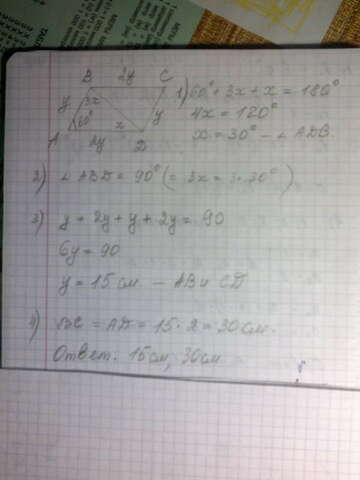 B 2y C
y 3x y
60° x
A 2y D
1) 60° + 3x + x = 180°
4x = 120°
x = 30° – ∠ ADB.
2) ∠ ABD = 90° (= 3x = 3·30°)
3) y + 2y + y + 2y = 90
6y = 90
y = 15 см – AB и CD
4) BC = AD = 15 · 2 = 30 см.
Ответ: 15 см, 30 см